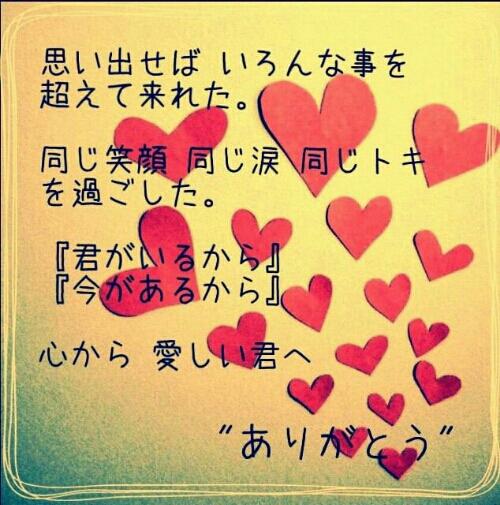 思い出せば いろんな事を
超えて来れた。
同じ笑顔 同じ涙 同じトキ
を過ごした。
『君がいるから』
『今があるから』
心から 愛しい君へ
"ありがとう"